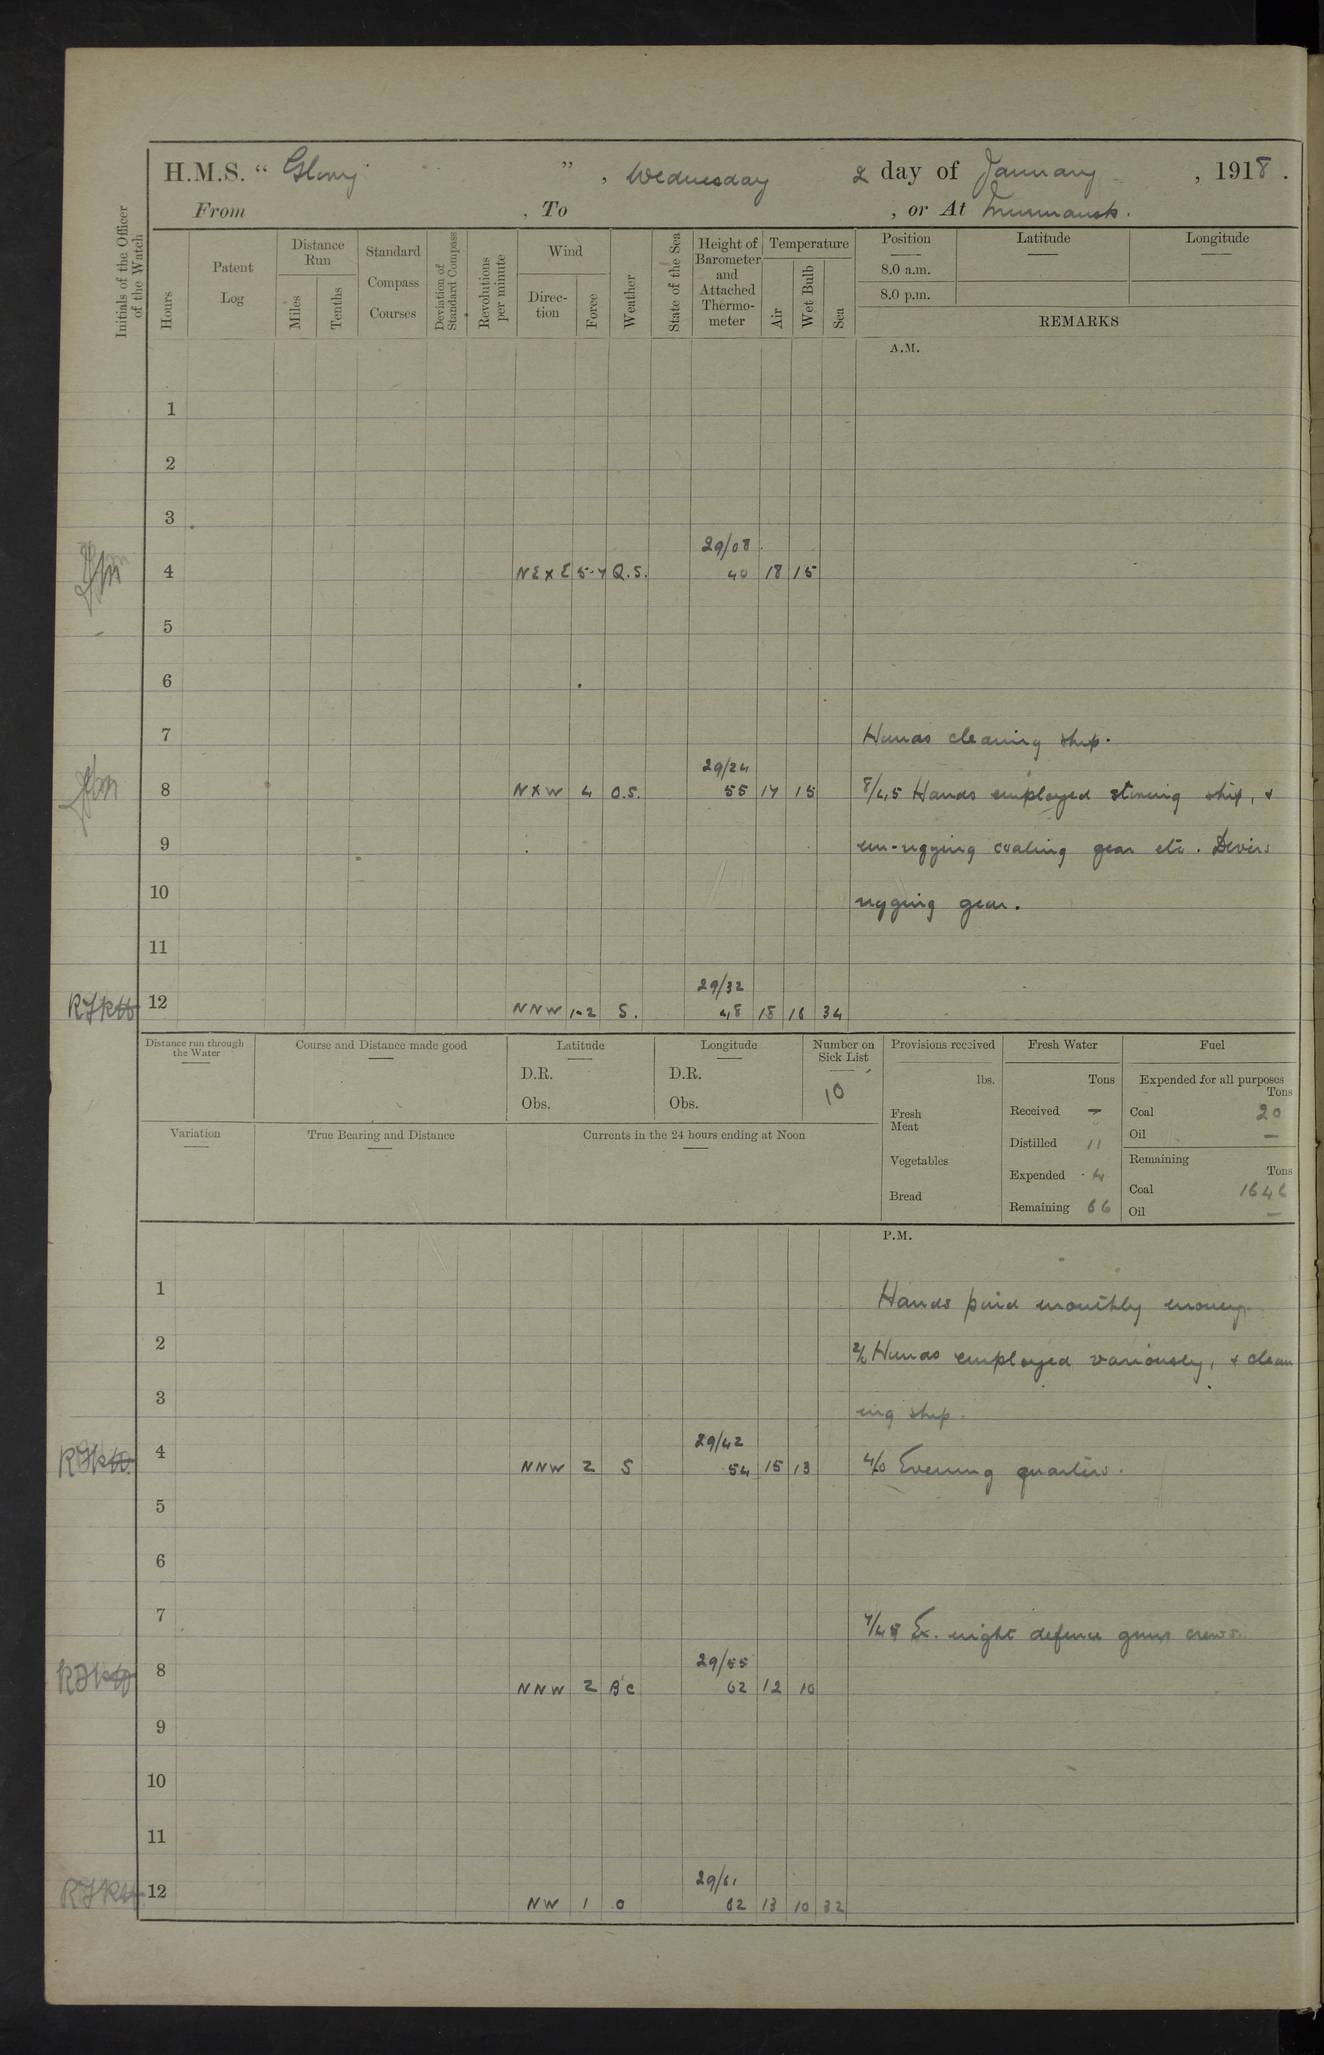 H.M.S. “ Glory ” , Wednesday 2 day of January , 1918 .
From , To , or At Murmansk.
Initials of the Officer of the Watch
Hours
Patent Log
Distance Run
Miles
Tenths
Standard Compass Courses
Deviation of Standard Compass
Revolutions per minute
Wind
Direc-tion
Force
Weather
State of the Sea
Height of Barometer and Attached Thermo-meter
Temperature
Air
Wet Bulb
Sea
Position
8.0 a.m.
8.0 p.m.
Latitude
Longitude
REMARKS
A.M.
1
2
3
29/08
4 NE x E 5-7 Q.S. 40 18 15
5
6
7 Hands cleaning ship.
29/24
8 N x W 4 O.S. 55 17 15 8/45 Hands employed storing ship, &
9 un-rigging coaling gear etc. Divers
10 rigging gear.
11
29/32
RJKH 12 NNW 1-2 S. 48 18 16 34
Distance run through the Water
Course and Distance made good
Latitude
D.R.
Obs.
Longitude
D.R.
Obs.
Number on Sick List
10
Provisions received
lbs.
Fresh Meat
Vegetables
Bread
Fresh Water
Tons
Received —
Distilled 11
Expended 4
Remaining 66
Fuel
Expended for all purposes
Tons
Coal 20
Oil —
Remaining
Tons
Coal 1646
Oil —
Variation
True Bearing and Distance
Currents in the 24 hours ending at Noon
P.M.
1 Hands paid monthly money.
2 2/0 Hands employed variously, & clean
3 ing ship.
29/42
4 NNW 2 S 54 15 13 4/0 Evening quarters.
5
6
7 7/45 Ex. night defence guns crews.
29/55
8 NNW 2 BC 62 12 10
9
10
11
29/61
12 NW 1 O 62 13 10 32